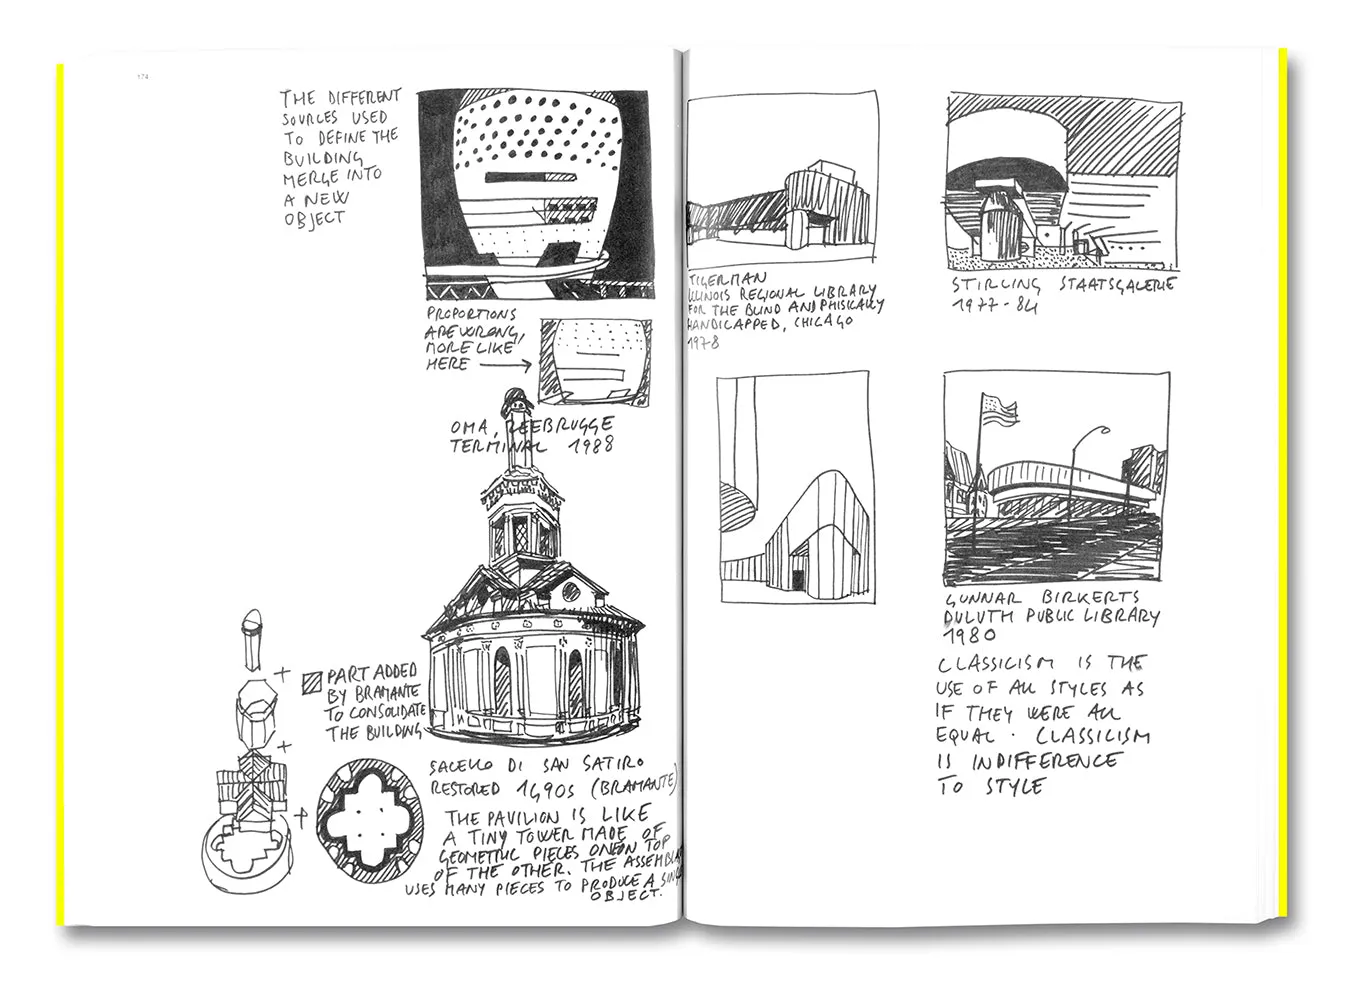 174
THE DIFFERENT
SOURCES USED
TO DEFINE THE
BUILDING
MERGE INTO
A NEW
OBJECT
PROPORTIONS
ARE WRONG,
MORE LIKE
HERE
OMA, ZEEBRUGGE
TERMINAL 1988
PART ADDED
BY BRAMANTE
TO CONSOLIDATE
THE BUILDING
SACELLO DI SAN SATIRO
RESTORED 1490s (BRAMANTE)
THE PAVILION IS LIKE
A TINY TOWER MADE OF
GEOMETRIC PIECES ON TOP
OF THE OTHER. THE
USES MANY PIECES TO PRODUCE A
OBJECT.
TIGERMAN
ILLINOIS REGIONAL LIBRARY
FOR THE BLIND AND PHISICALLY
HANDICAPPED, CHICAGO
1978
STIRLING STAATSGALERIE
1977-84
GUNNAR BIRKERTS
DULUTH PUBLIC LIBRARY
1980
CLASSICISM IS THE
USE OF ALL STYLES AS
IF THEY WERE ALL
EQUAL · CLASSICISM
IS INDIFFERENCE
TO STYLE